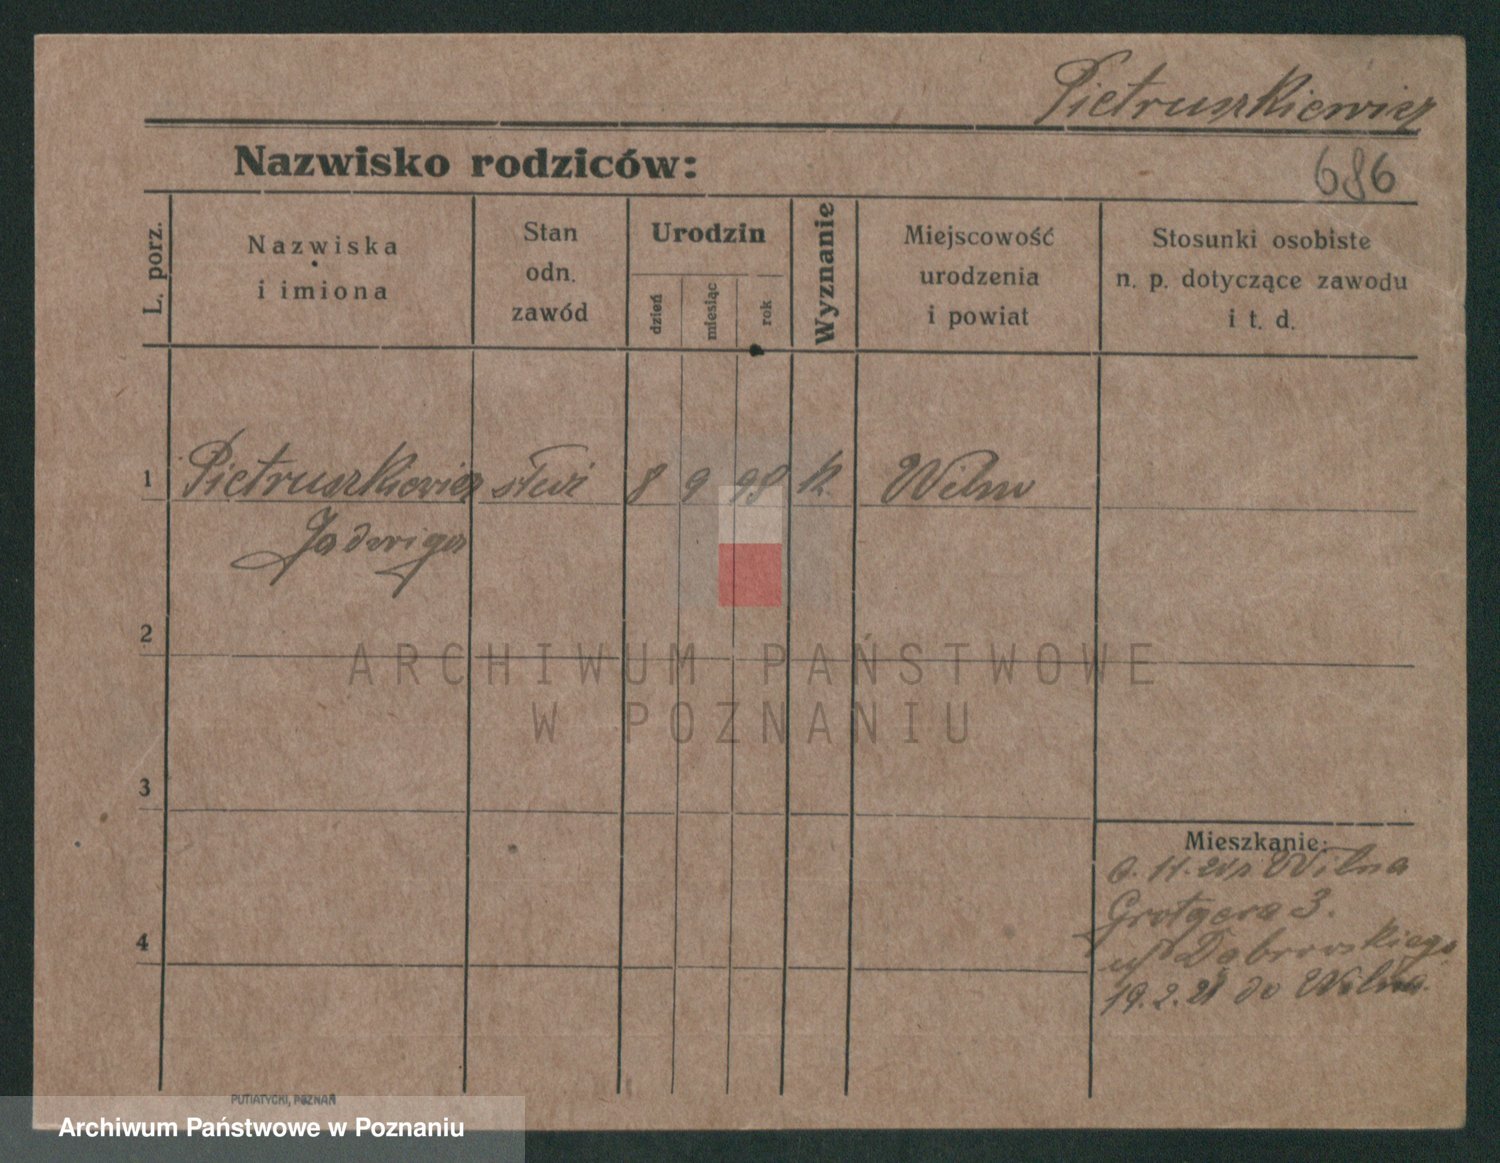 Pietruszkiewicz
Nazwisko rodziców:
686
L. porz.
Nazwiska
i imiona
Stan
odn.
zawód
Urodzin
dzień
miesiąc
rok
Wyznanie
Miejscowość
urodzenia
i powiat
Stosunki osobiste
n. p. dotyczące zawodu
i t. d.
1 Pietruszkiewicz 8 9 98 k. Wilno
Jadwiga
2
ARCHIWUM PAŃSTWOWE
W POZNANIU
3
Mieszkanie:
Wilna
Grotgera 3.
Dąbrowskiego
4
19.2.21 do Wilna.
PUTIATYCKI, POZNAŃ
Archiwum Państwowe w Poznaniu